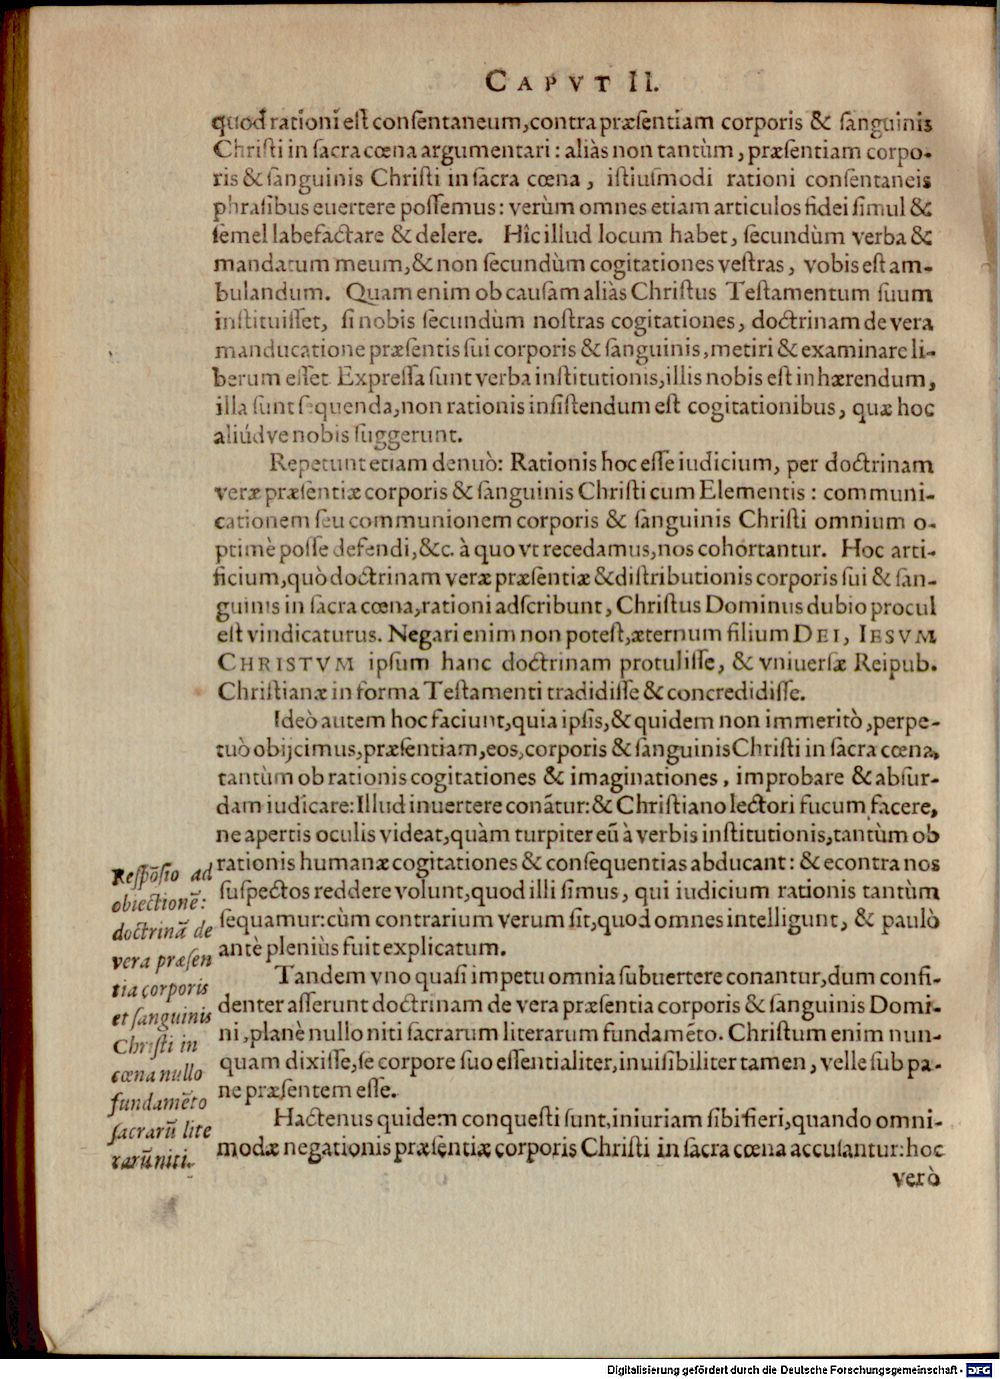 CAPVT II.
quod rationi est consentaneum, contra præsentiam corporis & sanguinis
Christi in sacra cœna argumentari: aliàs non tantùm, præsentiam corpo-
ris & sanguinis Christi in sacra cœna, istiusmodi rationi consentaneis
phrasibus euertere possemus: verùm omnes etiam articulos fidei simul &
semel labefactare & delere. Hîc illud locum habet, secundùm verba &
mandatum meum, & non secundùm cogitationes vestras, vobis est am-
bulandum. Quam enim ob causam aliàs Christus Testamentum suum
instituisset, si nobis secundùm nostras cogitationes, doctrinam de vera
manducatione præsentis sui corporis & sanguinis, metiri & examinare li-
berum esset. Expressa sunt verba institutionis, illis nobis est inhærendum,
illa sunt sequenda, non rationis insistendum est cogitationibus, quæ hoc
aliúdve nobis suggerunt.
Repetunt etiam denuò: Rationis hoc esse iudicium, per doctrinam
veræ præsentiæ corporis & sanguinis Christi cum Elementis: communi-
cationem seu communionem corporis & sanguinis Christi omnium o-
ptimè posse defendi, &c. à quo vt recedamus, nos cohortantur. Hoc arti-
ficium, quò doctrinam veræ præsentiæ & distributionis corporis sui & san-
guinis in sacra cœna, rationi adscribunt, Christus Dominus dubio procul
est vindicaturus. Negari enim non potest, æternum filium DEI, IESVM
CHRISTVM ipsum hanc doctrinam protulisse, & vniuersæ Reipub.
Christianæ in forma Testamenti tradidisse & concredidisse.
Ideò autem hoc faciunt, quia ipsis, & quidem non immeritò, perpe-
tuò obijcimus, præsentiam, eos, corporis & sanguinis Christi in sacra cœna,
tantùm ob rationis cogitationes & imaginationes, improbare & absur-
dam iudicare: Illud inuertere conãtur: & Christiano lectori fucum facere,
ne apertis oculis videat, quàm turpiter eũ à verbis institutionis, tantùm ob
rationis humanæ cogitationes & consequentias abducant: & econtra nos
suspectos reddere volunt, quod illi simus, qui iudicium rationis tantùm
sequamur: cùm contrarium verum sit, quod omnes intelligunt, & paulò
antè pleniùs fuit explicatum.
Respõsio ad
obiectionẽ:
doctrinã de
vera præsen
tia corporis
et sanguinis
Christi in
cœna nullo
fundamẽto
sacrarũ lite
rarũ niti.
Tandem vno quasi impetu omnia subuertere conantur, dum confi-
denter asserunt doctrinam de vera præsentia corporis & sanguinis Domi-
ni, planè nullo niti sacrarum literarum fundamẽto. Christum enim nun-
quam dixisse, se corpore suo essentialiter, inuisibiliter tamen, velle sub pa-
ne præsentem esse.
Hactenus quidem conquesti sunt, iniuriam sibi fieri, quando omni-
modæ negationis præsentiæ corporis Christi in sacra cœna accusantur: hoc
verò
Digitalisierung gefördert durch die Deutsche Forschungsgemeinschaft - DFG